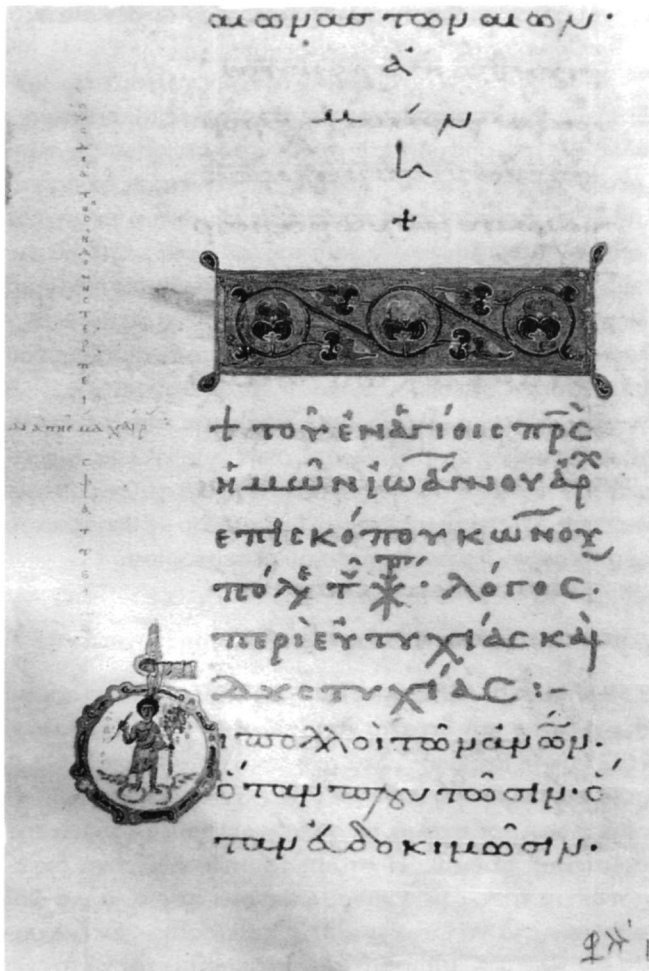 αιωνασ των αιων·
ἀ
μ ή ν
+
+ τοῦ ἐν ἁγίοις πρς
ἡμῶν ἰωάννου ἀρχ
επισκόπου κωνου
πόλ τοῦ χρ· λόγος·
περὶ εὐτυχίας καὶ
δυστυχίας :-
Οι πολλοὶ τῶν ἀνῶν·
ὅταν πλουτῶσιν· ὅ
ταν εὐδοκιμῶσιν·